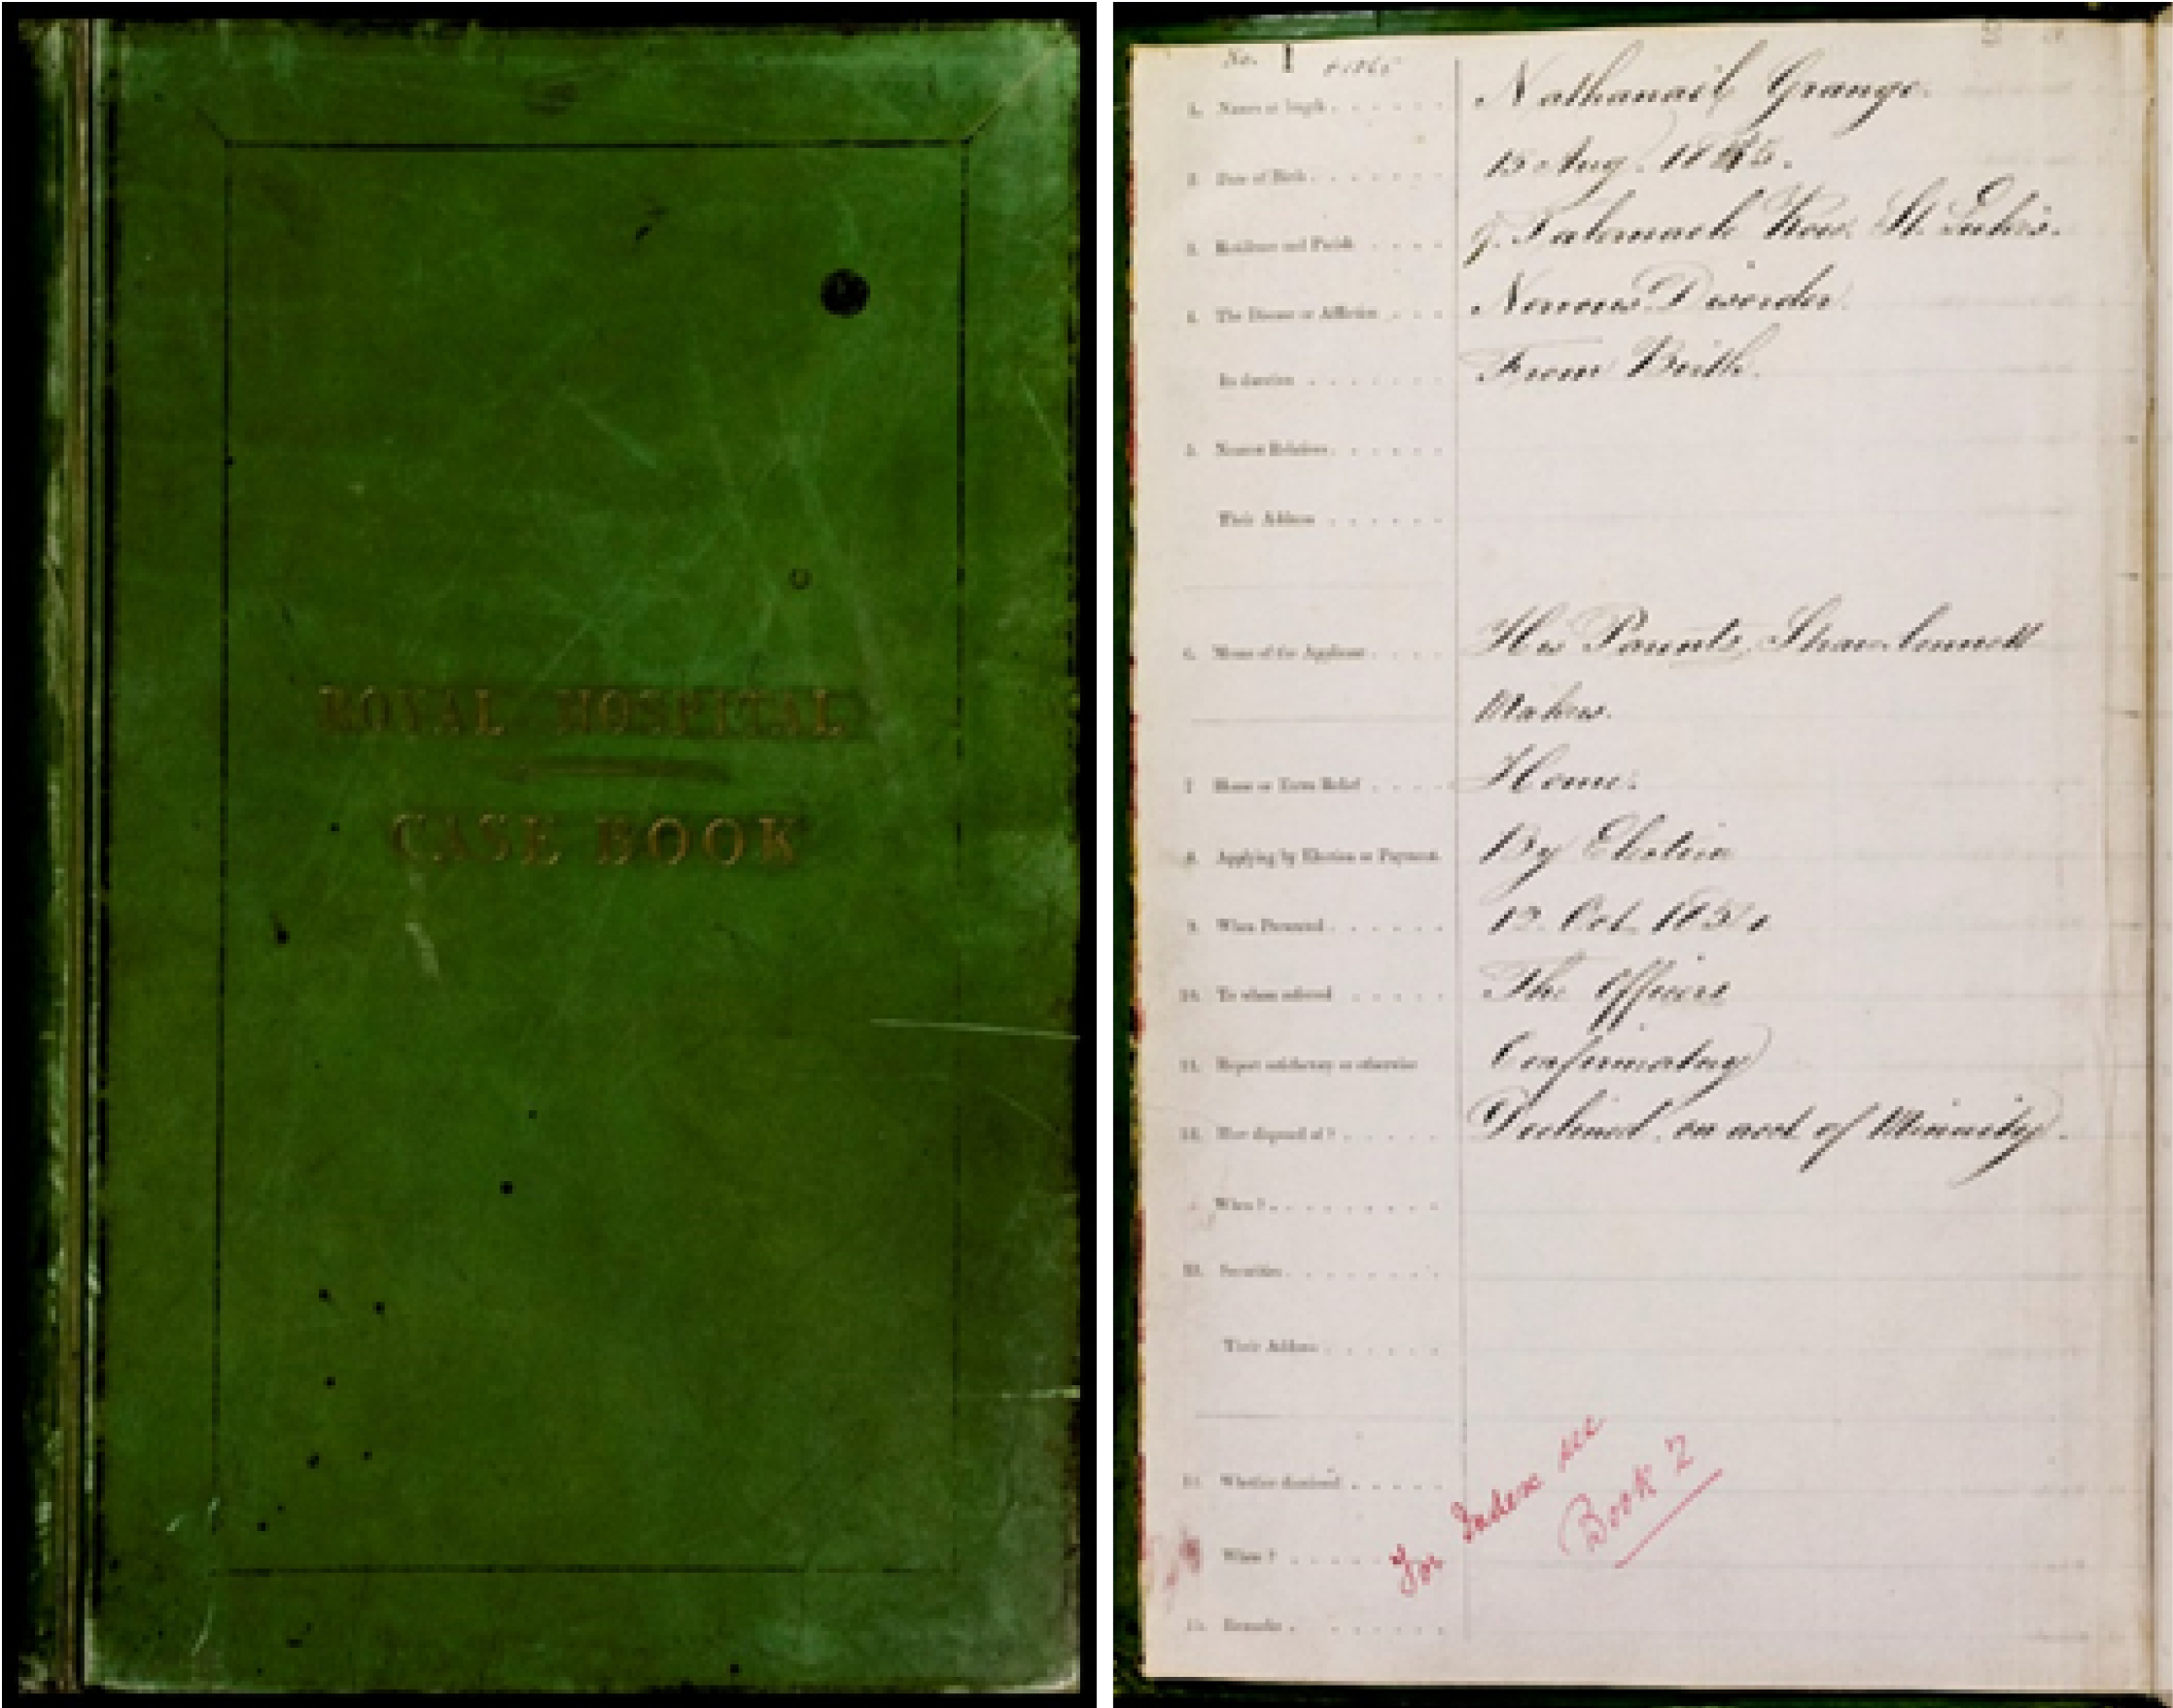 ROYAL HOSPITAL
CASE BOOK
No. 1
1. Name at length
Nathanael Grange.
2. Date of Birth
15 Aug. 18
3. Residence and Parish
Tabernacle Row, St. Luke's.
4. The Disease or Affliction
Nervous Disorder.
Its duration
From Birth.
5. Nearest Relatives
Their Address
6. Means of the Applicant
His Parents, Straw bonnett
Makers.
7 Home or Extra Relief
Home.
8. Applying by Election or Payment
By Election
9. When Presented
Oct. 185
10. To whom referred
The Officers
11. Report satisfactory or otherwise
Confirmatory
12. How disposed of?
Declined, on acct. of Minority.
When?
13. Securities
Their Address
14. Whether dismissed
When?
15. Remarks
For Index see
Book 2